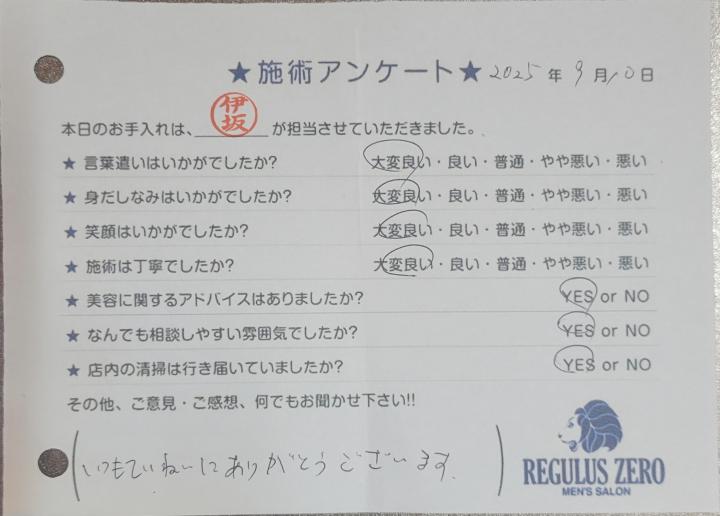 ★施術アンケート★ 2025年 9月10日
本日のお手入れは、伊坂が担当させていただきました。
★ 言葉遣いはいかがでしたか? 大変良い・良い・普通・やや悪い・悪い
★ 身だしなみはいかがでしたか? 大変良い・良い・普通・やや悪い・悪い
★ 笑顔はいかがでしたか? 大変良い・良い・普通・やや悪い・悪い
★ 施術は丁寧でしたか? 大変良い・良い・普通・やや悪い・悪い
★ 美容に関するアドバイスはありましたか? YES or NO
★ なんでも相談しやすい雰囲気でしたか? YES or NO
★ 店内の清掃は行き届いていましたか? YES or NO
その他、ご意見・ご感想、何でもお聞かせ下さい!!
(いつもていねいにありがとうございます。)
REGULUS ZERO
MEN'S SALON